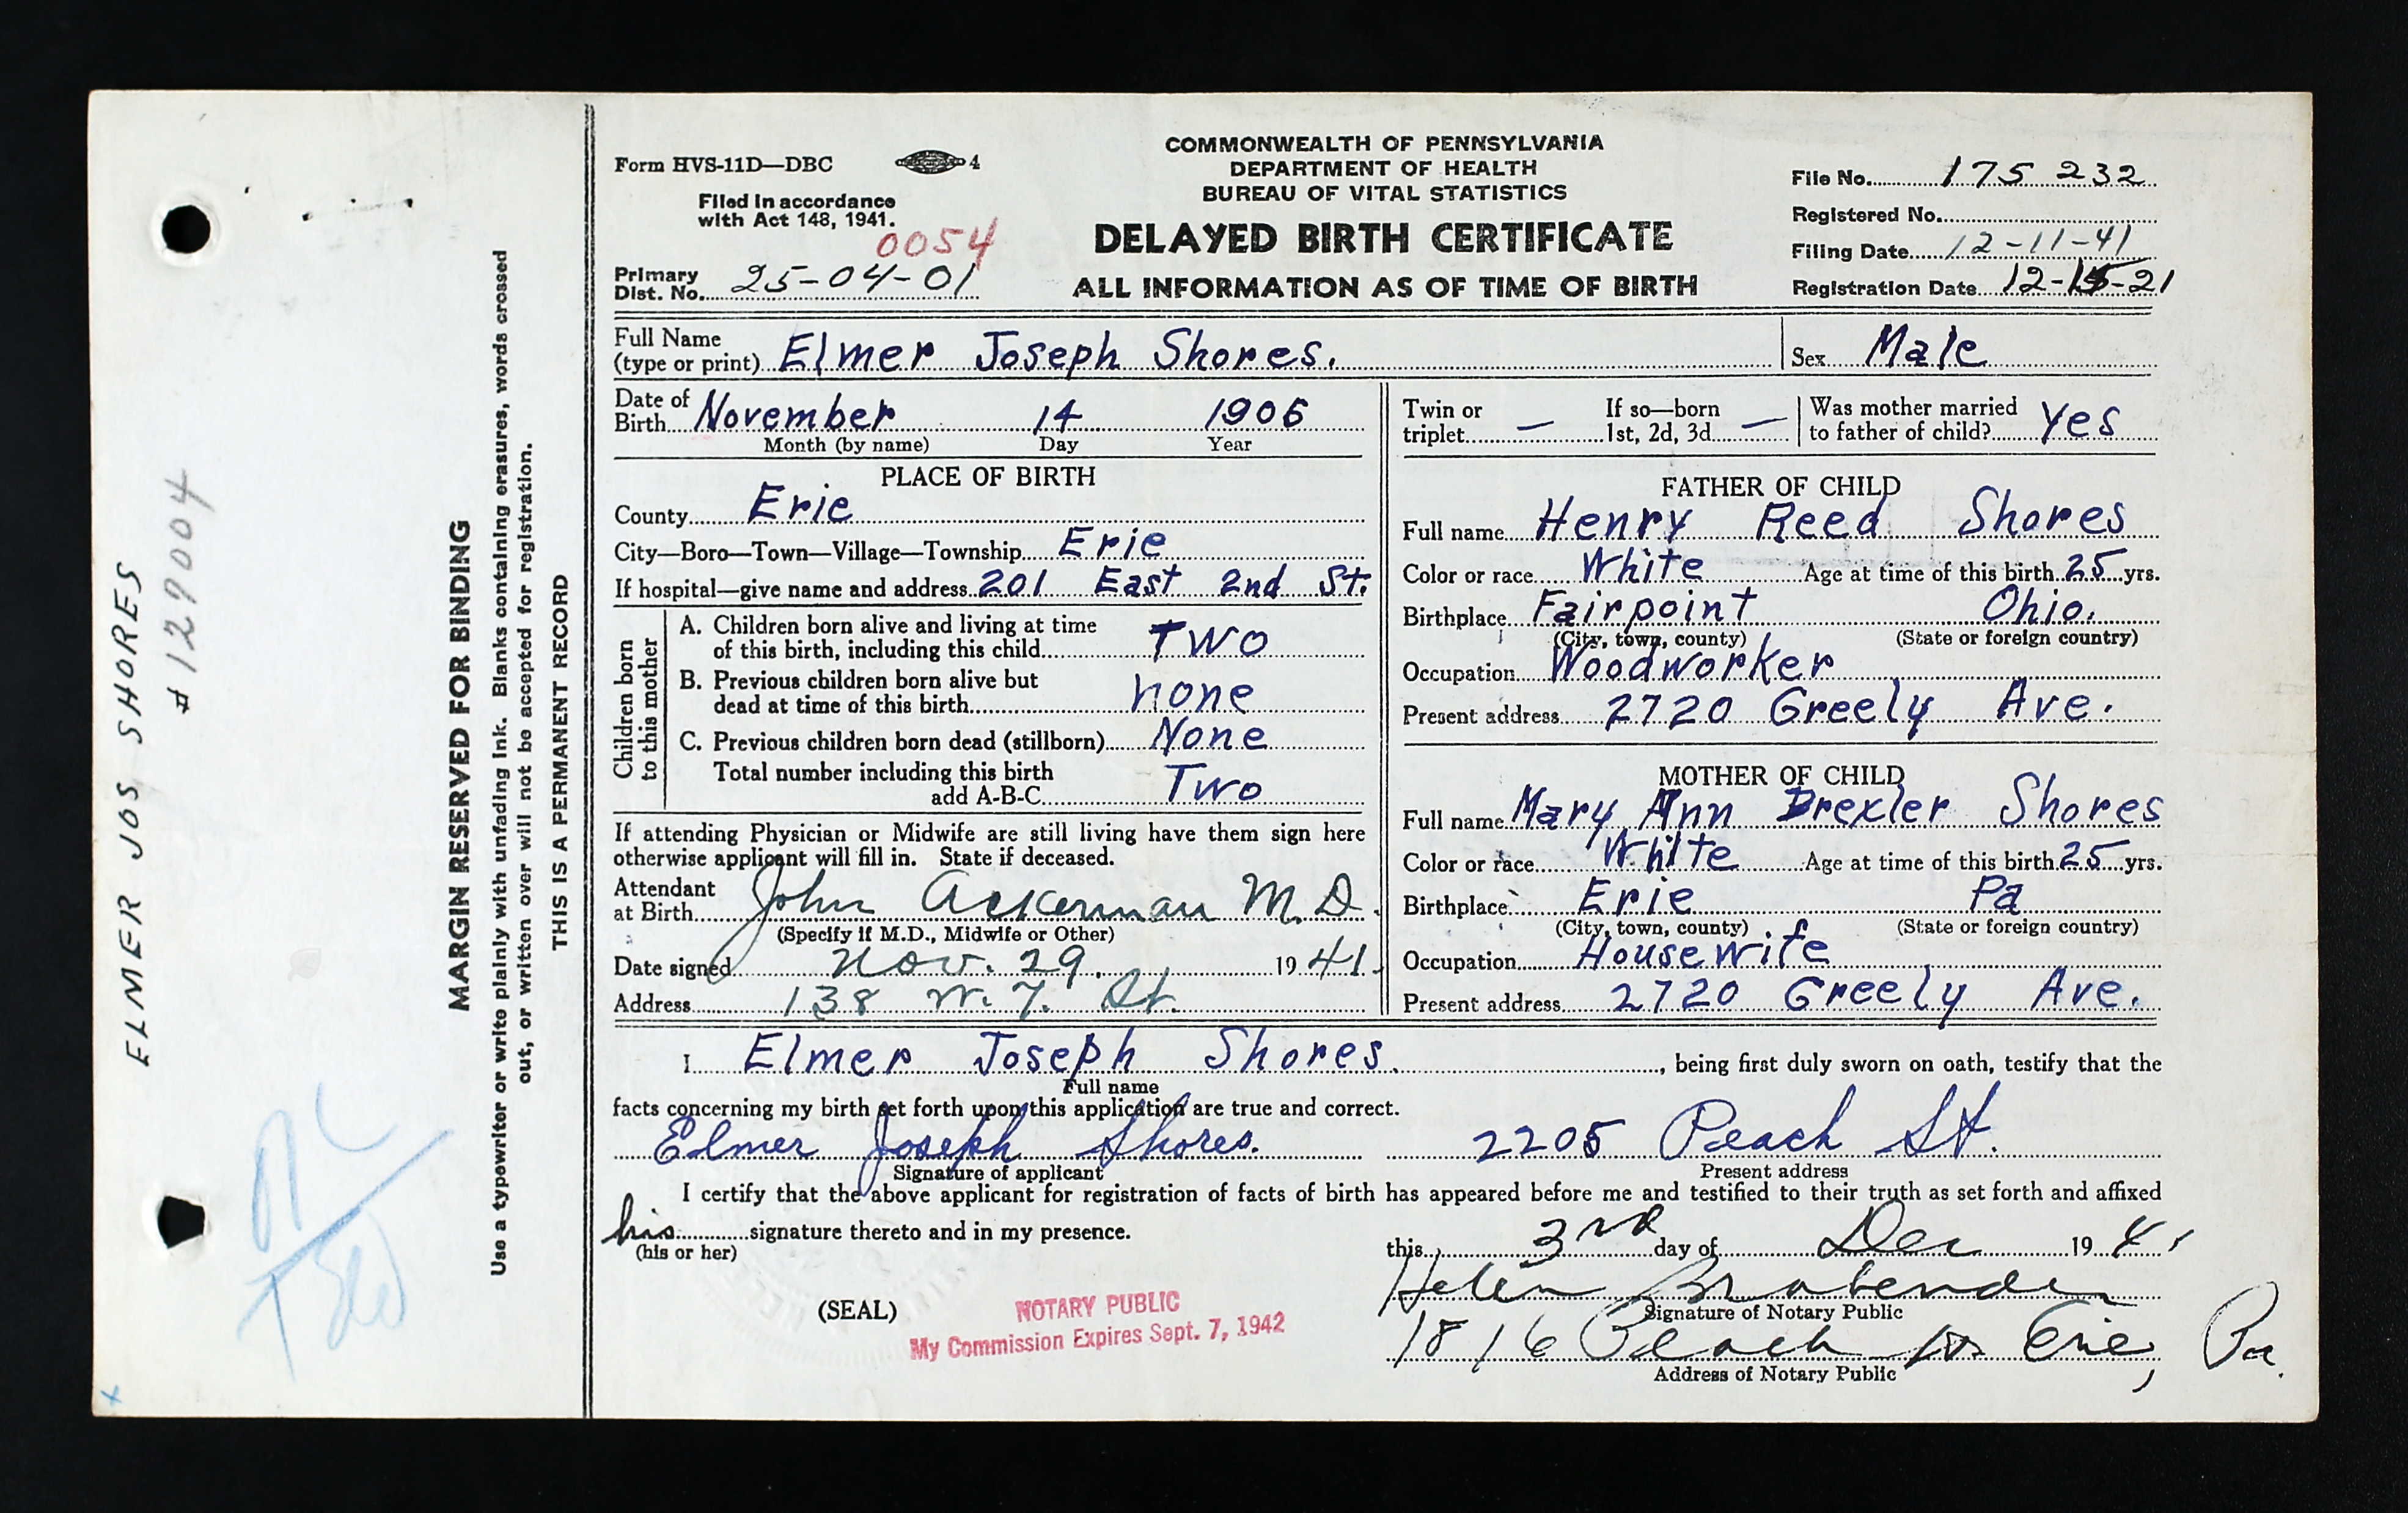 ELMER JOS SHORES
#127004
MARGIN RESERVED FOR BINDING
Use a typewriter or write plainly with unfading ink. Blanks containing erasures, words crossed
out, or written over will not be accepted for registration.
THIS IS A PERMANENT RECORD
Form HVS-11D—DBC 4
Filed in accordance
with Act 148, 1941.
0054
Primary
Dist. No. 25-04-01
COMMONWEALTH OF PENNSYLVANIA
DEPARTMENT OF HEALTH
BUREAU OF VITAL STATISTICS
DELAYED BIRTH CERTIFICATE
ALL INFORMATION AS OF TIME OF BIRTH
File No. 175 232
Registered No.
Filing Date 12-11-41
Registration Date 12-15-21
Full Name
(type or print) Elmer Joseph Shores.
Sex Male
Date of
Birth November 14 1906
Month (by name) Day Year
Twin or
triplet —
If so—born
1st, 2d, 3d —
Was mother married
to father of child? Yes
PLACE OF BIRTH
County Erie
City—Boro—Town—Village—Township Erie
If hospital—give name and address 201 East 2nd St.
Children born
to this mother
A. Children born alive and living at time
of this birth, including this child Two
B. Previous children born alive but
dead at time of this birth none
C. Previous children born dead (stillborn) None
Total number including this birth
add A-B-C Two
If attending Physician or Midwife are still living have them sign here
otherwise applicant will fill in. State if deceased.
Attendant
at Birth John Ackerman M.D.
(Specify if M.D., Midwife or Other)
Date signed Nov. 29. 1941.
Address 138 W. 7. St.
FATHER OF CHILD
Full name Henry Reed Shores
Color or race White Age at time of this birth 25 yrs.
Birthplace Fairpoint Ohio.
(City, town, county) (State or foreign country)
Occupation Woodworker
Present address 2720 Greely Ave.
MOTHER OF CHILD
Full name Mary Ann Drexler Shores
Color or race White Age at time of this birth 25 yrs.
Birthplace Erie Pa
(City, town, county) (State or foreign country)
Occupation Housewife
Present address 2720 Greely Ave.
I Elmer Joseph Shores., being first duly sworn on oath, testify that the
Full name
facts concerning my birth set forth upon this application are true and correct.
Elmer Joseph Shores. 2205 Peach St.
Signature of applicant Present address
I certify that the above applicant for registration of facts of birth has appeared before me and testified to their truth as set forth and affixed
his signature thereto and in my presence.
(his or her)
this 3rd day of Dec 1941
(SEAL)
NOTARY PUBLIC
My Commission Expires Sept. 7, 1942
Helen Brabender
Signature of Notary Public
1816 Peach St Erie, Pa.
Address of Notary Public